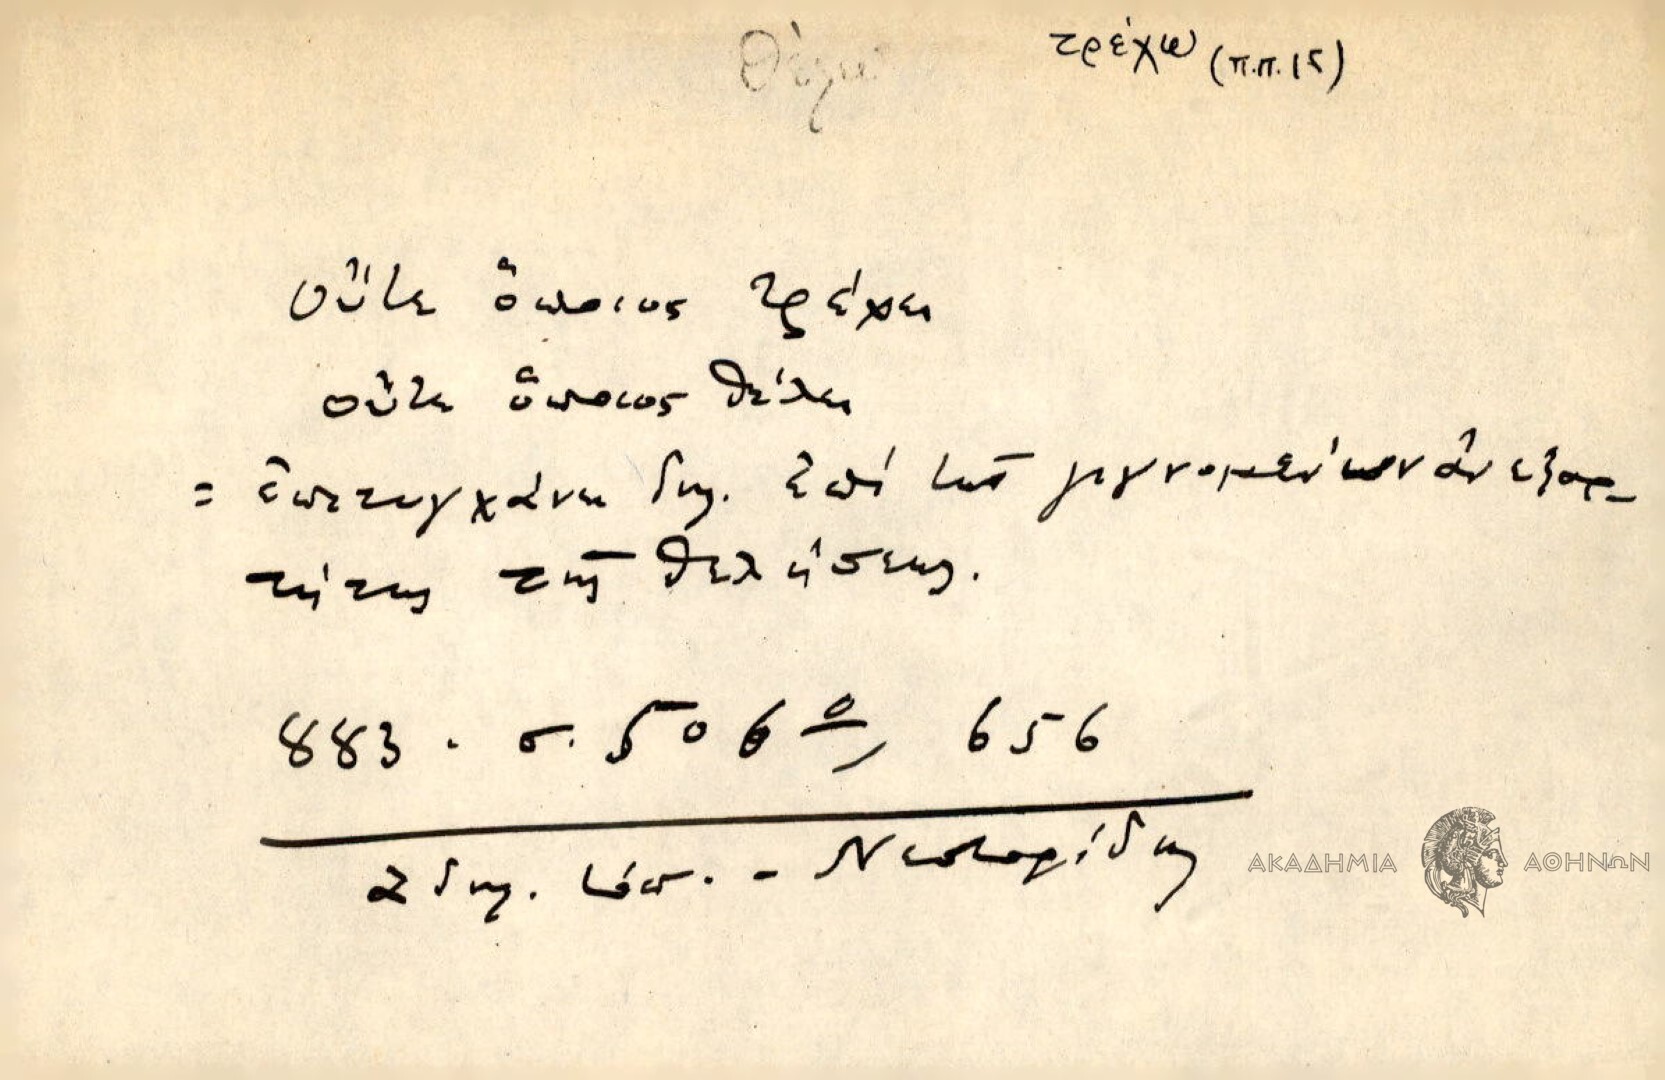 θέλω
τρέχω (π.π. 15)
οὔτε ὅποιος τρέχει
οὔτε ὅποιος θέλει
= ἐπιτυγχάνει δηλ. ἐπί τῶν γιγνομένων ἀνεξαρ-
τήτως τῆς θελήσεως.
883. σ. 506 656
2 δημ. - Νεστορίδης
ΑΚΑΔΗΜΙΑ ΑΘΗΝΩΝ